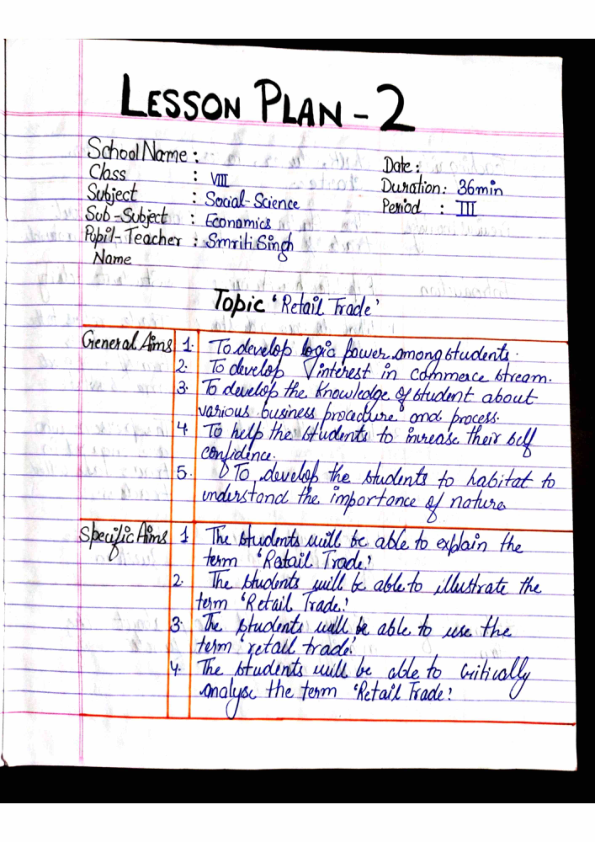 LESSON PLAN - 2
School Name :
Date :
Class : VIII
Duration : 36min
Subject : Social-Science
Period : III
Sub-Subject : Economics
Pupil-Teacher : Smriti Singh
Name
Topic 'Retail Trade'
General Aims 1. To develop logic power among students.
2. To develop interest in commerce stream.
3. To develop the knowledge of student about
various business procedure and process.
4. To help the students to increase their self
confidence.
5. To develop the students to habitat to
understand the importance of nature
Specific Aims 1 The students will be able to explain the
term 'Retail Trade.'
2. The students will be able to illustrate the
term 'Retail Trade.'
3. The students will be able to use the
term 'retail trade.'
4. The students will be able to critically
analyse the term 'Retail Trade.'